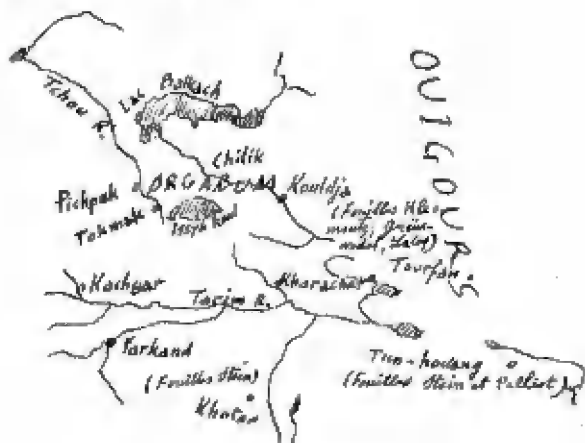 OUIGOURS
Tchou R.
Lac
Balkach
Chilik
Pichpek
ORGABUM
Kouldja
Tokmak
Issyk Koul
(Fouilles Kle-
mentz, Grün-
wedel, Lecoq)
Tourfan
Kachgar
Tarim R.
Kharachar
Yarkand
(Fouilles Stein)
Khotan
Tun-hoang
(Fouilles Stein et Pelliot)